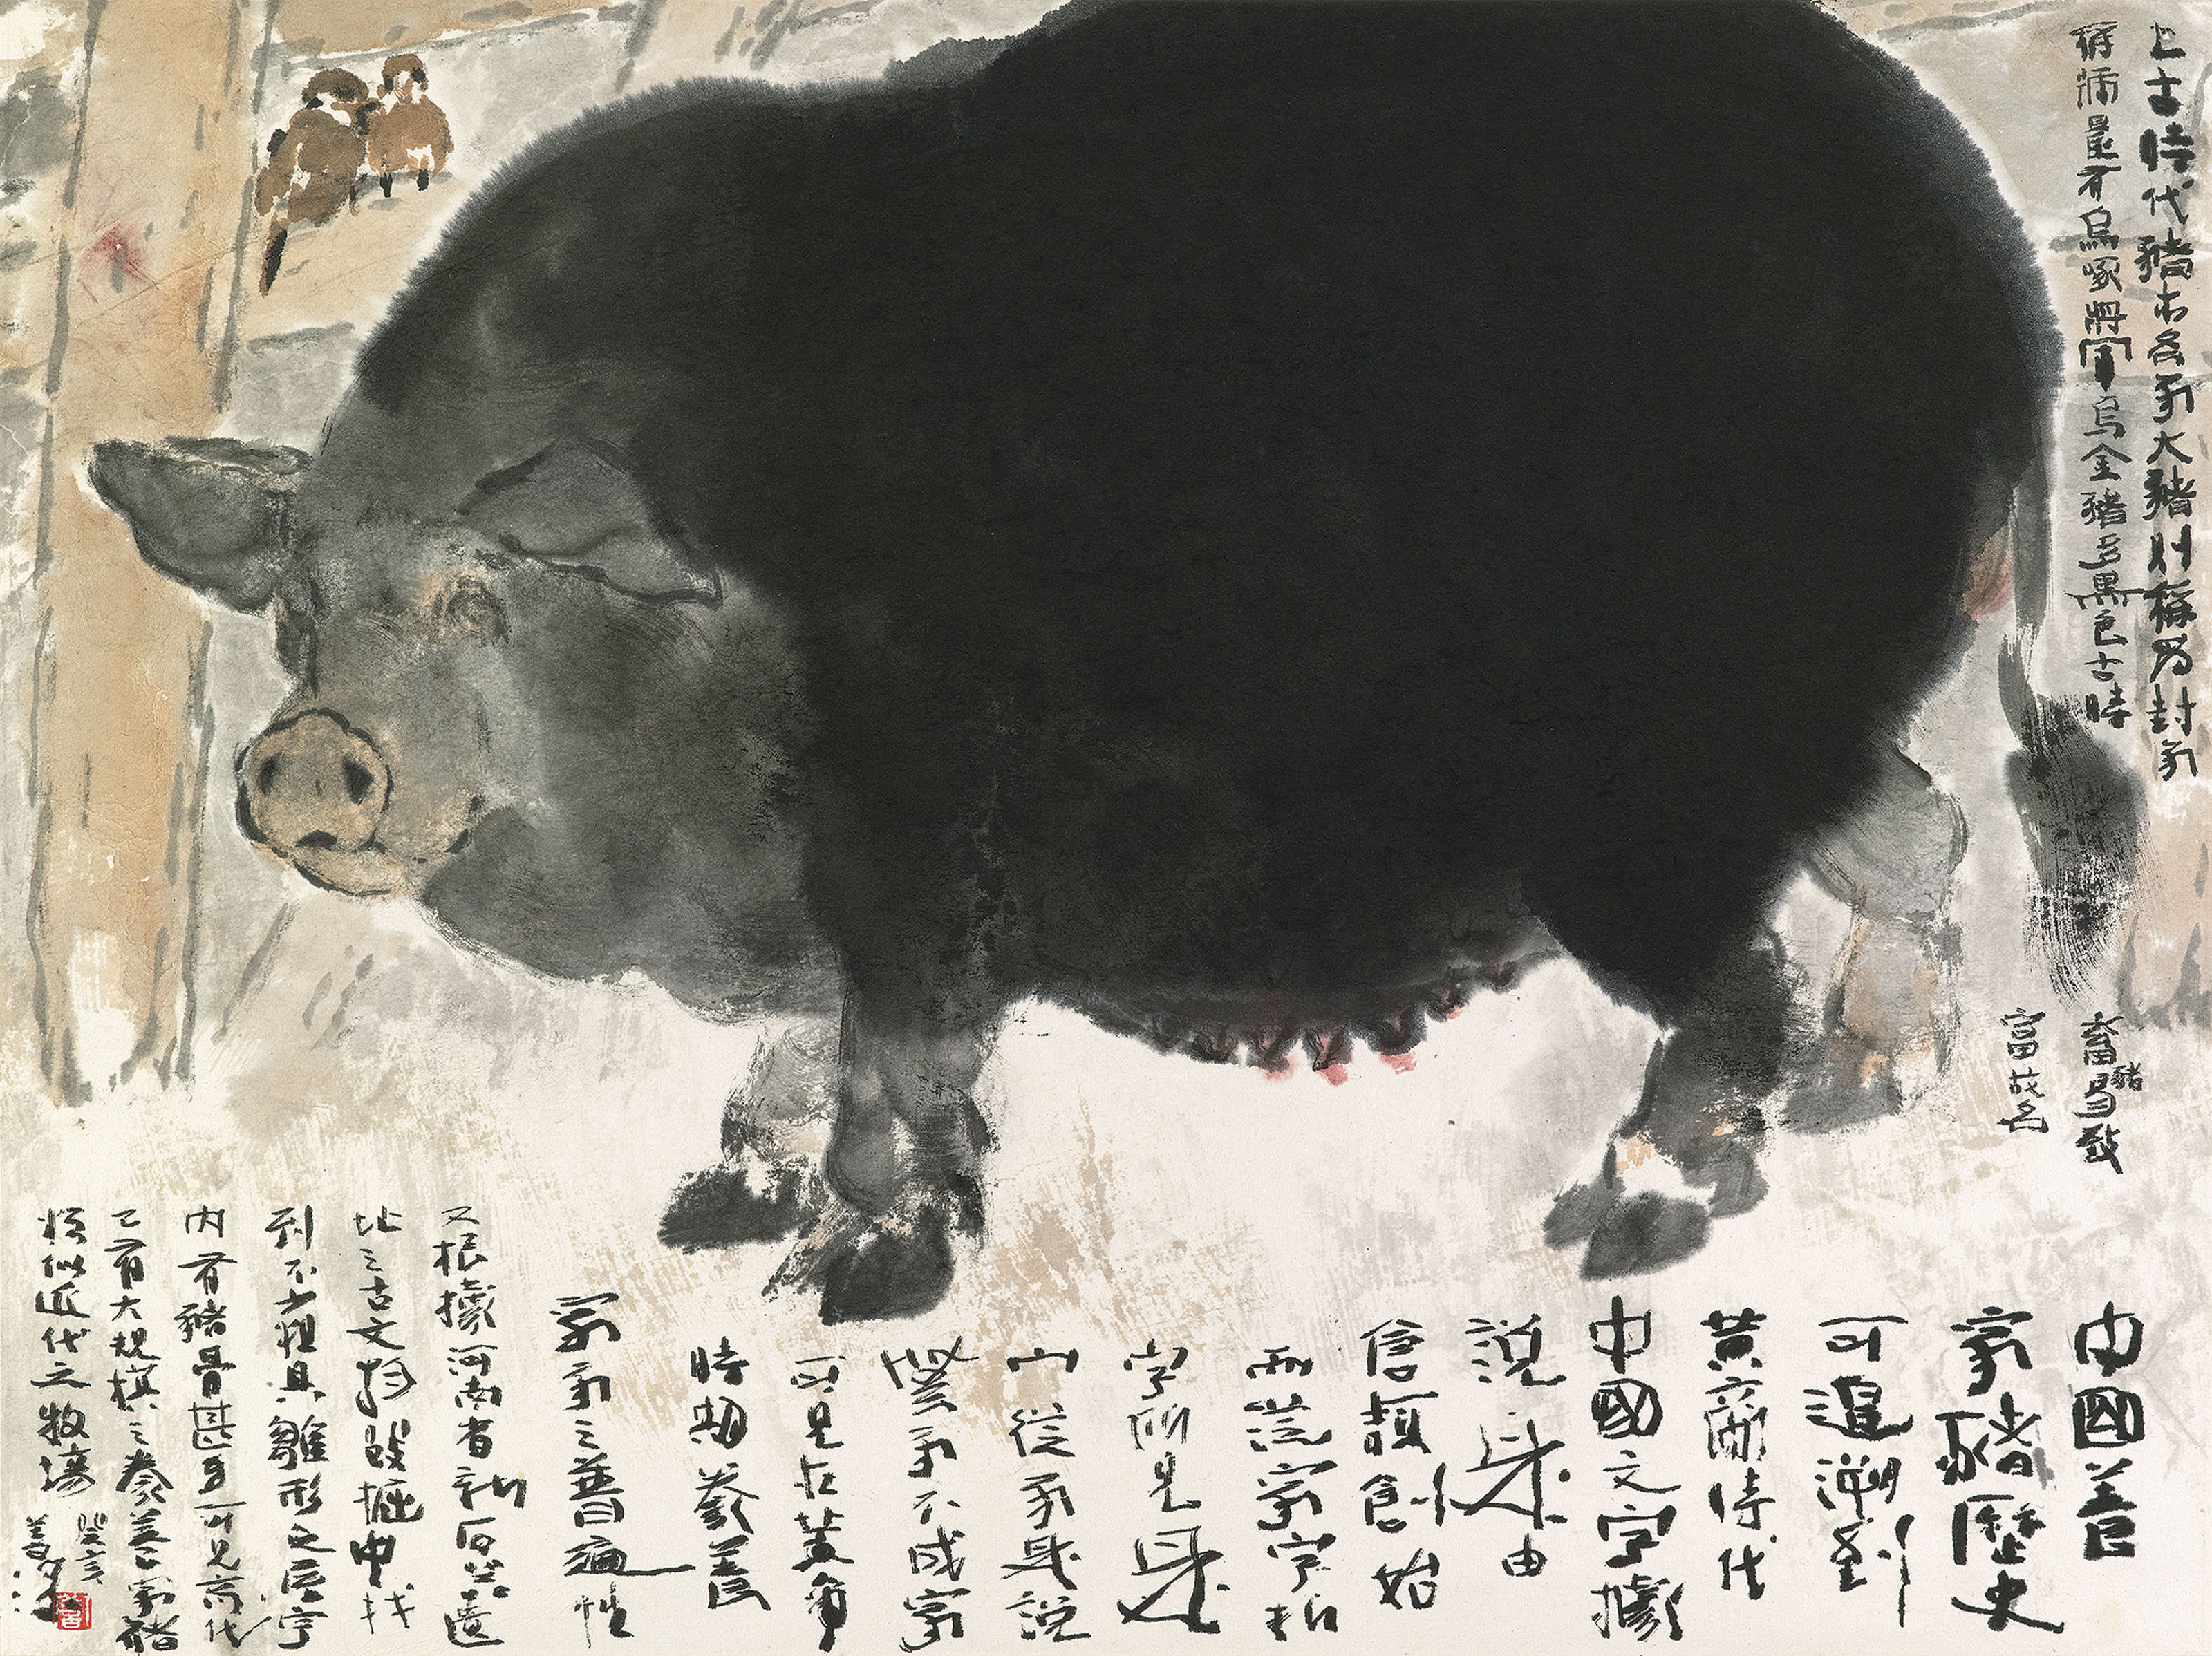 上古時代豬亦名豕大豬則稱為封豕
俗稱有烏啄將軍烏金豬多黑色古時
畜豬易致
富故名
中國養
家豬歷史
可追溯到
黃帝時代
中國文字據
說是由
倉頡創始
而從家字析
字所見是
宀從豕是說
無豕不成家
可見在黃帝
時期豢養
家豕之普遍性
又根據河南省新石器遺
址之古文物發掘中找
到不少粗具雛形之居宇
內有豬骨甚多可見古代
已有大規模之豢養家豬
類似近代之牧場
癸亥